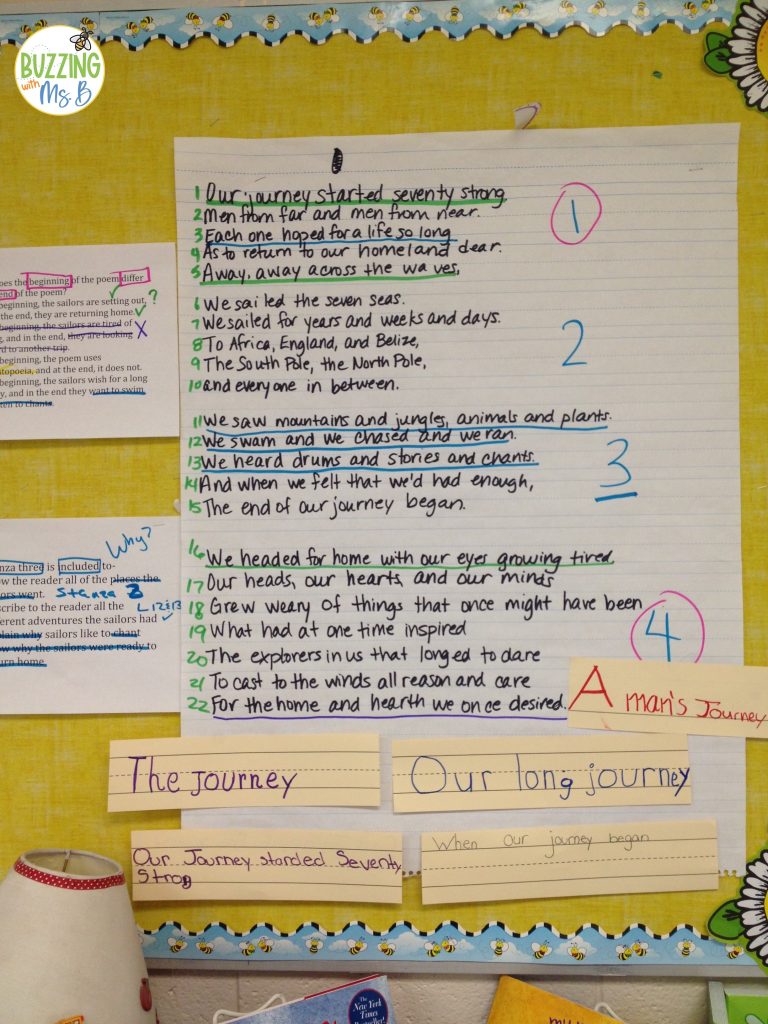 BUZZING
with
Ms. B
1 Our journey started seventy strong
2 Men from far and men from near.
3 Each one hoped for a life so long
4 As to return to our homeland dear.
5 Away, away across the waves,
1
6 We sailed the seven seas.
7 We sailed for years and weeks and days.
8 To Africa, England, and Belize,
9 The South Pole, the North Pole,
10 and everyone in between.
2
11 We saw mountains and jungles, animals and plants.
12 We swam and we chased and we ran.
13 We heard drums and stories and chants.
14 And when we felt that we'd had enough,
15 The end of our journey began.
3
16 We headed for home with our eyes growing tired
17 Our heads, our hearts, and our minds
18 Grew weary of things that once might have been
19 What had at one time inspired
20 The explorers in us that longed to dare
21 To cast to the winds all reason and care
22 For the home and hearth we once desired.
4
A man's Journey
The journey
Our long journey
Our Journey starded Seventy
Strog
When Our journey began
oes the beginning of the poem differ
end of the poem?
beginning, the sailors are setting out, ?
the end, they are returning home.
beginning, the sailors are tired of
g, and in the end, they are looking X
d to another trip.
beginning, the poem uses
atopoeia, and at the end, it does not.
beginning, the sailors wish for a long
y, and in the end they want to swim
ten to chants.
Why?
nza three is included to-
ow the reader all of the places the
ors went. Stanza 2
scribe to the reader all the L 12 & 13
ferent adventures the sailors had
plain why sailors like to chant
ow why the sailors were ready to
urn home.
The
New York
Times